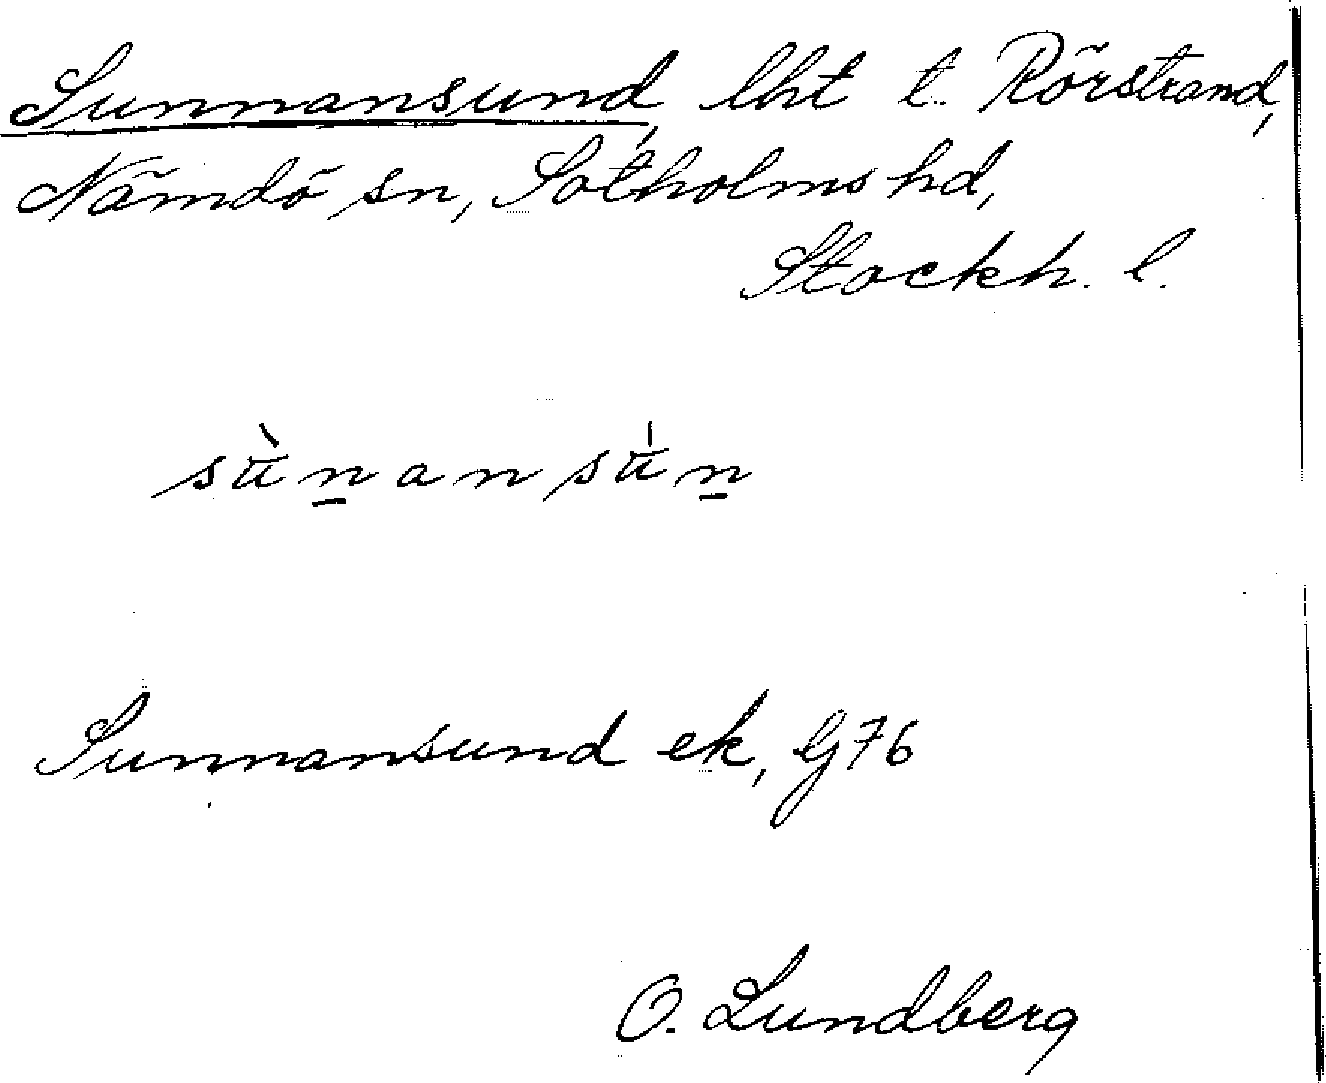 Sunnansund, lht t. Rörstrand,
Nämdö sn, Sotholms hd,
Stockh. l.
sùn̲ansu̍n̲
Sunnansund ek, Gj 76
O. Lundberg